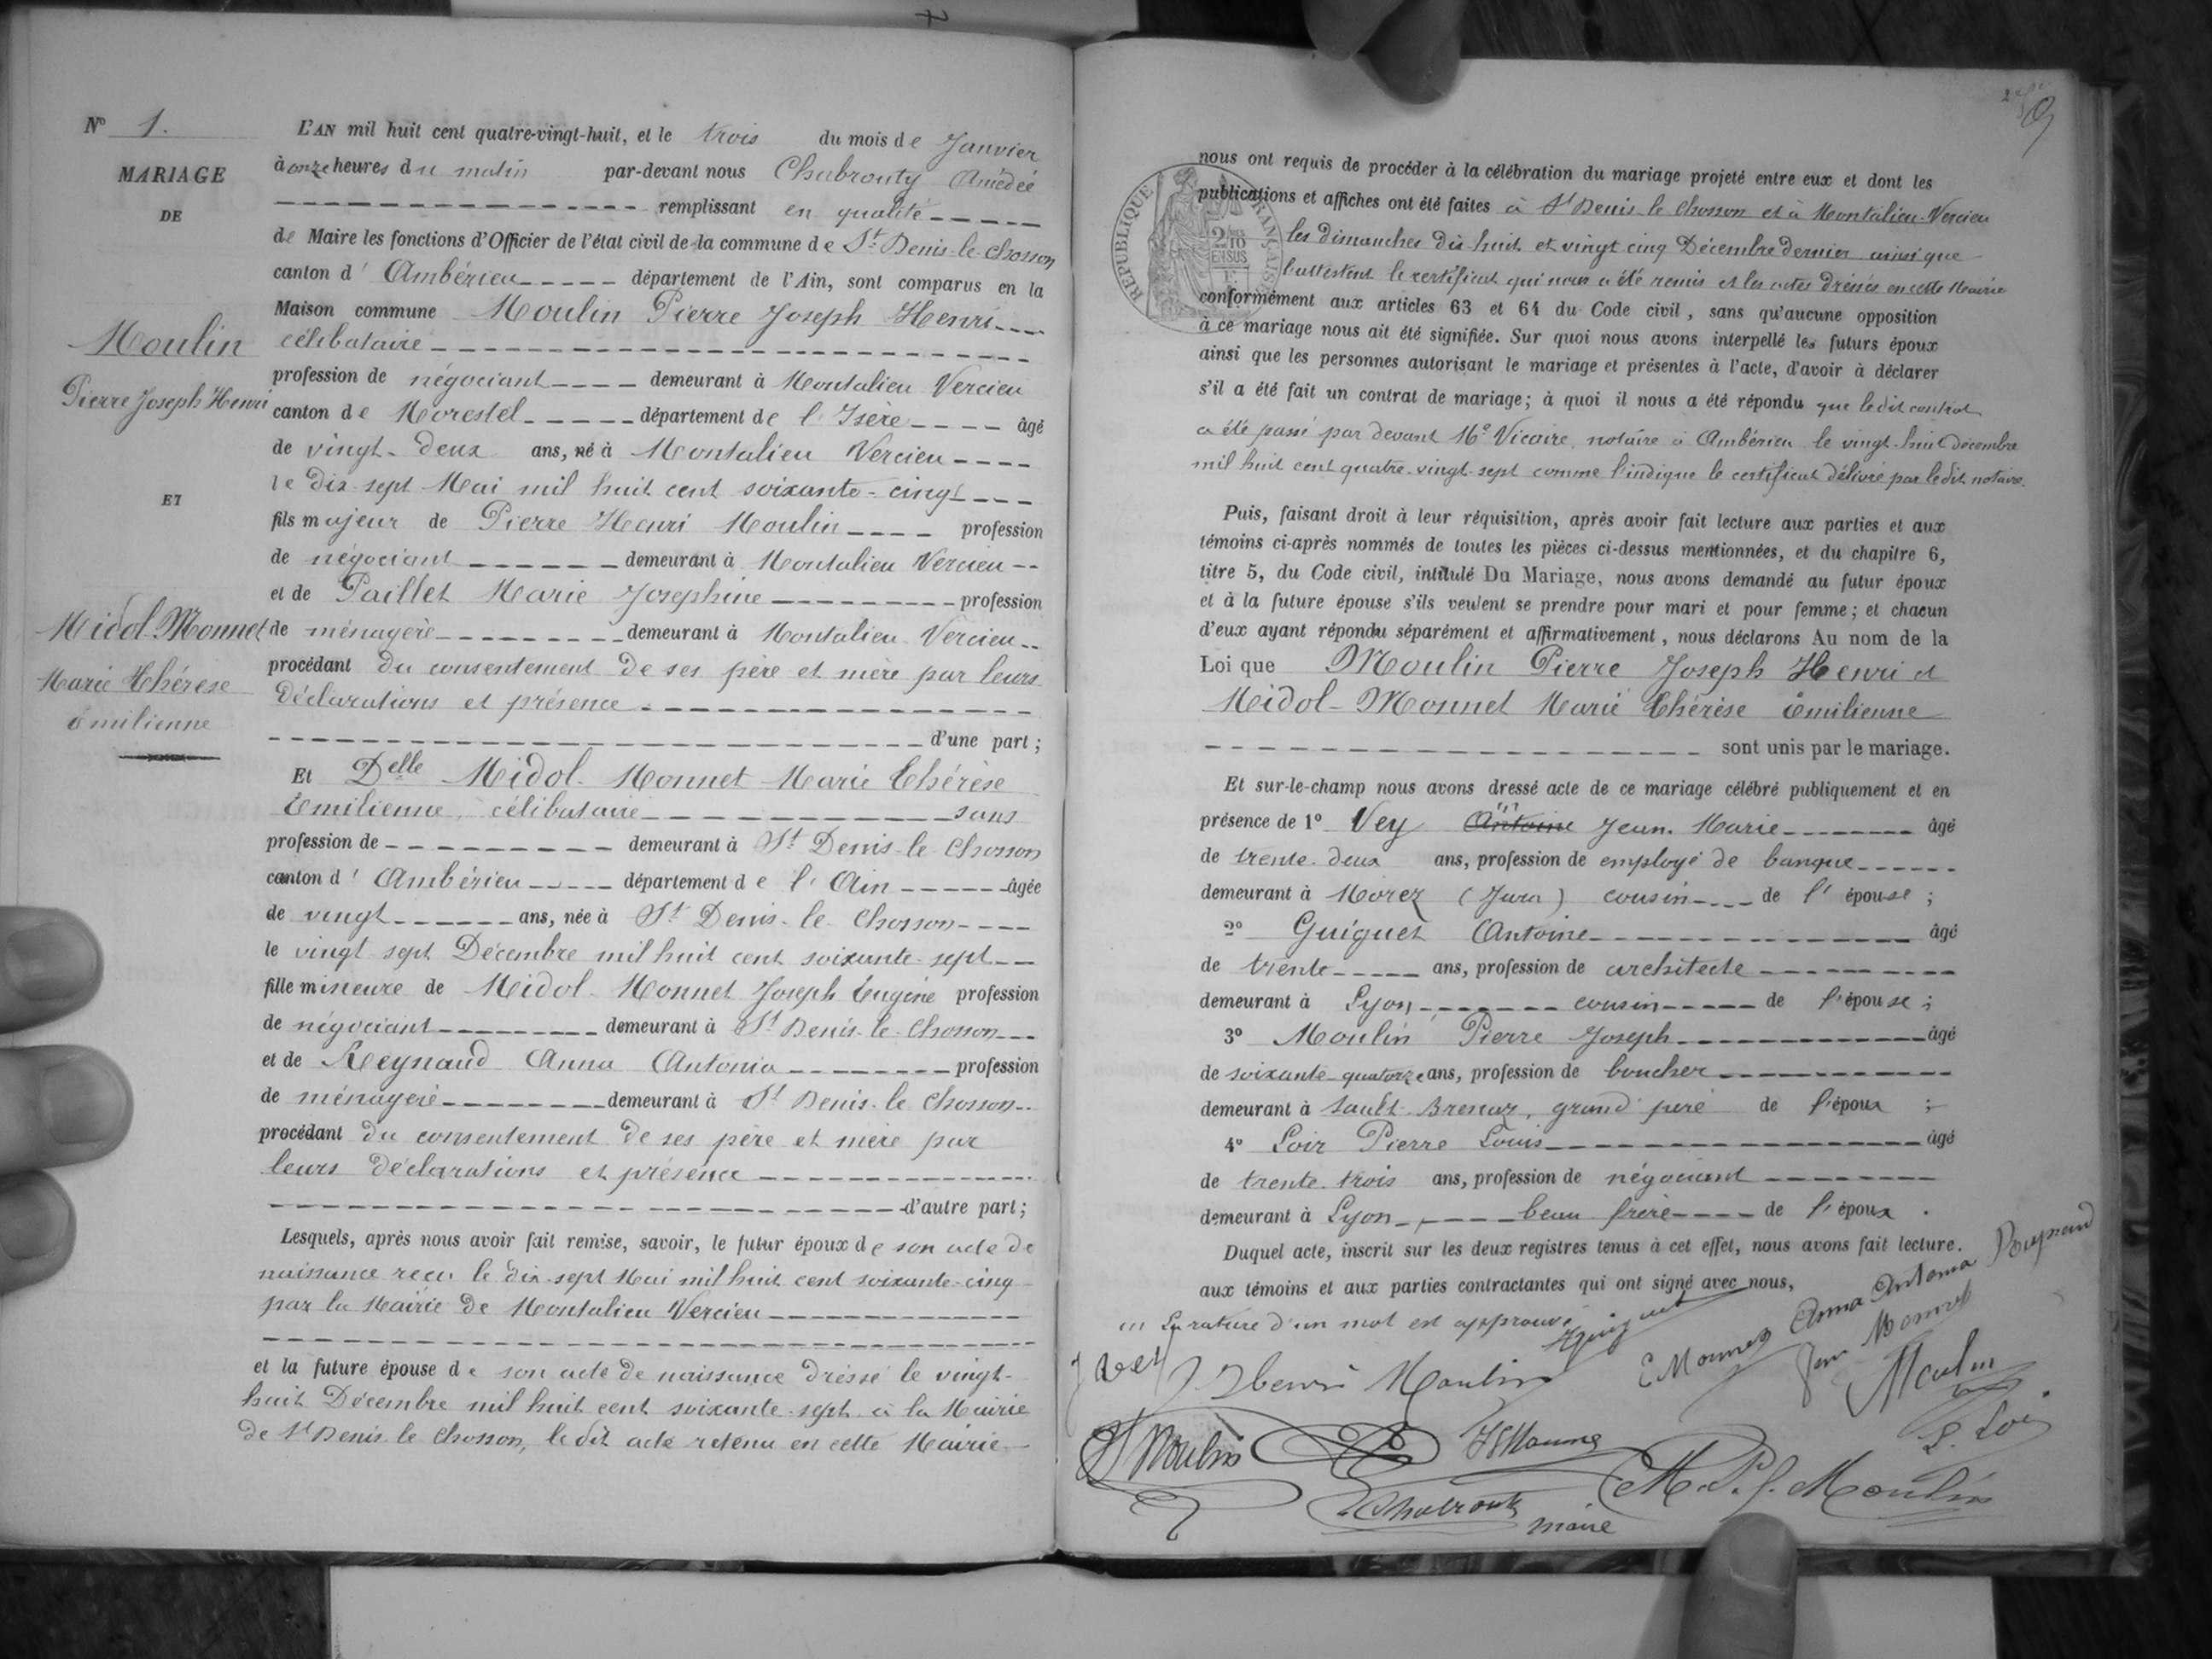 N° 1.
MARIAGE
DE
Moulin
Pierre Joseph Henri
ET
Midol-Monnet
Marie Thérèse
Emilienne
L'AN mil huit cent quatre-vingt-huit, et le trois du mois de Janvier
à onze heures du matin par-devant nous Chabrouty Amédée
remplissant en qualité
de Maire les fonctions d'Officier de l'état civil de la commune de St Denis-le-Chosson
canton d'Ambérieu département de l'Ain, sont comparus en la
Maison commune Moulin Pierre Joseph Henri
célibataire
profession de négociant demeurant à Montalieu Vercieu
canton de Morestel département de l'Isère âgé
de vingt-deux ans, né à Montalieu Vercieu
le dix-sept Mai mil huit cent soixante-cinq
fils majeur de Pierre Henri Moulin profession
de négociant demeurant à Montalieu Vercieu
et de Paillet Marie Josephine profession
de ménagère demeurant à Montalieu Vercieu
procédant du consentement de ses père et mère par leurs
déclarations et présence
d'une part ;
Et Delle Midol-Monnet Marie Thérèse
Emilienne, célibataire sans
profession de demeurant à St Denis-le-Chosson
canton d'Ambérieu département de l'Ain âgée
de vingt ans, née à St Denis-le-Chosson
le vingt-sept Décembre mil huit cent soixante-sept
fille mineure de Midol-Monnet Joseph Eugène profession
de négociant demeurant à St Denis-le-Chosson
et de Reynaud Anna Antonia profession
de ménagère demeurant à St Denis-le-Chosson
procédant du consentement de ses père et mère par
leurs déclarations et présence
d'autre part ;
Lesquels, après nous avoir fait remise, savoir, le futur époux de son acte de
naissance reçu le dix-sept Mai mil huit cent soixante-cinq
par la Mairie de Montalieu Vercieu
et la future épouse de son acte de naissance dressé le vingt-
huit Décembre mil huit cent soixante-sept à la Mairie
de St Denis le Chosson, le dit acte retenu en cette Mairie
nous ont requis de procéder à la célébration du mariage projeté entre eux et dont les
publications et affiches ont été faites à St Denis le Chosson et à Montalieu-Vercieu
les dimanches dix-huit et vingt cinq Décembre dernier ainsi que
l'attestent le certificat qui nous a été remis et les actes dressés en cette Mairie
conformément aux articles 63 et 64 du Code civil, sans qu'aucune opposition
à ce mariage nous ait été signifiée. Sur quoi nous avons interpellé les futurs époux
ainsi que les personnes autorisant le mariage et présentes à l'acte, d'avoir à déclarer
s'il a été fait un contrat de mariage ; à quoi il nous a été répondu que ledit contrat
a été passé par devant Me Vicaire, notaire à Ambérieu le vingt-huit décembre
mil huit cent quatre-vingt-sept comme l'indique le certificat délivré par ledit notaire.
Puis, faisant droit à leur réquisition, après avoir fait lecture aux parties et aux
témoins ci-après nommés de toutes les pièces ci-dessus mentionnées, et du chapitre 6,
titre 5, du Code civil, intitulé Du Mariage, nous avons demandé au futur époux
et à la future épouse s'ils veulent se prendre pour mari et pour femme ; et chacun
d'eux ayant répondu séparément et affirmativement, nous déclarons Au nom de la
Loi que Moulin Pierre Joseph Henri et
Midol-Monnet Marie Thérèse Emilienne
sont unis par le mariage.
Et sur-le-champ nous avons dressé acte de ce mariage célébré publiquement et en
présence de 1° Vey Antoine Jean-Marie âgé
de trente-deux ans, profession de employé de banque
demeurant à Morez (Jura) cousin de l'épouse ;
2° Guiguet Antoine âgé
de trente ans, profession de architecte
demeurant à Lyon cousin de l'épouse ;
3° Moulin Pierre Joseph âgé
de soixante-quatorze ans, profession de boucher
demeurant à Sault-Brenaz, grand père de l'époux ;
4° Loir Pierre Louis âgé
de trente-trois ans, profession de négociant
demeurant à Lyon, beau frère de l'époux.
Duquel acte, inscrit sur les deux registres tenus à cet effet, nous avons fait lecture.
aux témoins et aux parties contractantes qui ont signé avec nous,
La rature d'un mot est approuvé
Guiguet
Anna Antonia Reynaud
J Vey
Henri Moulin
E Monnet
Monnet
Moulin
L. Loir
Moulin
JE Monnet
M. P. J. Moulin
Chabrouty
maire
RÉPUBLIQUE FRANÇAISE
2/10 EN SUS